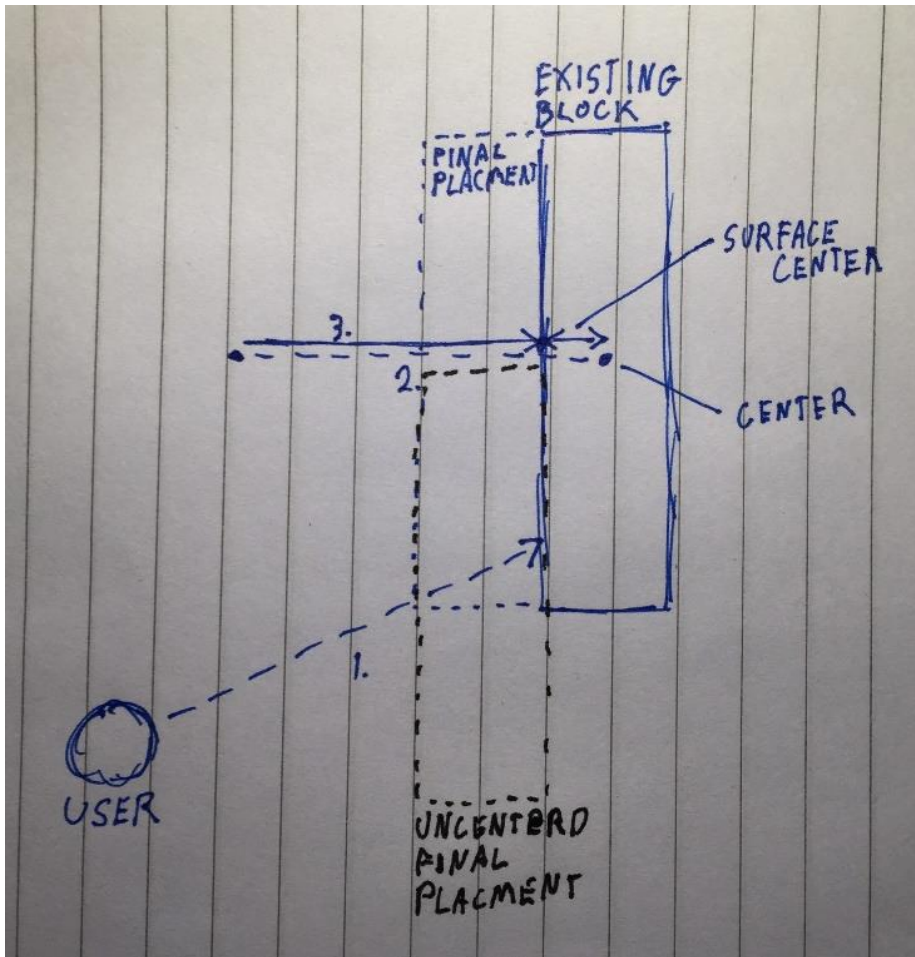 EXISTING
BLOCK
PINAL
PLACMENT
SURFACE
CENTER
3.
2.
CENTER
1.
USER
UNCENTERD
FINAL
PLACMENT